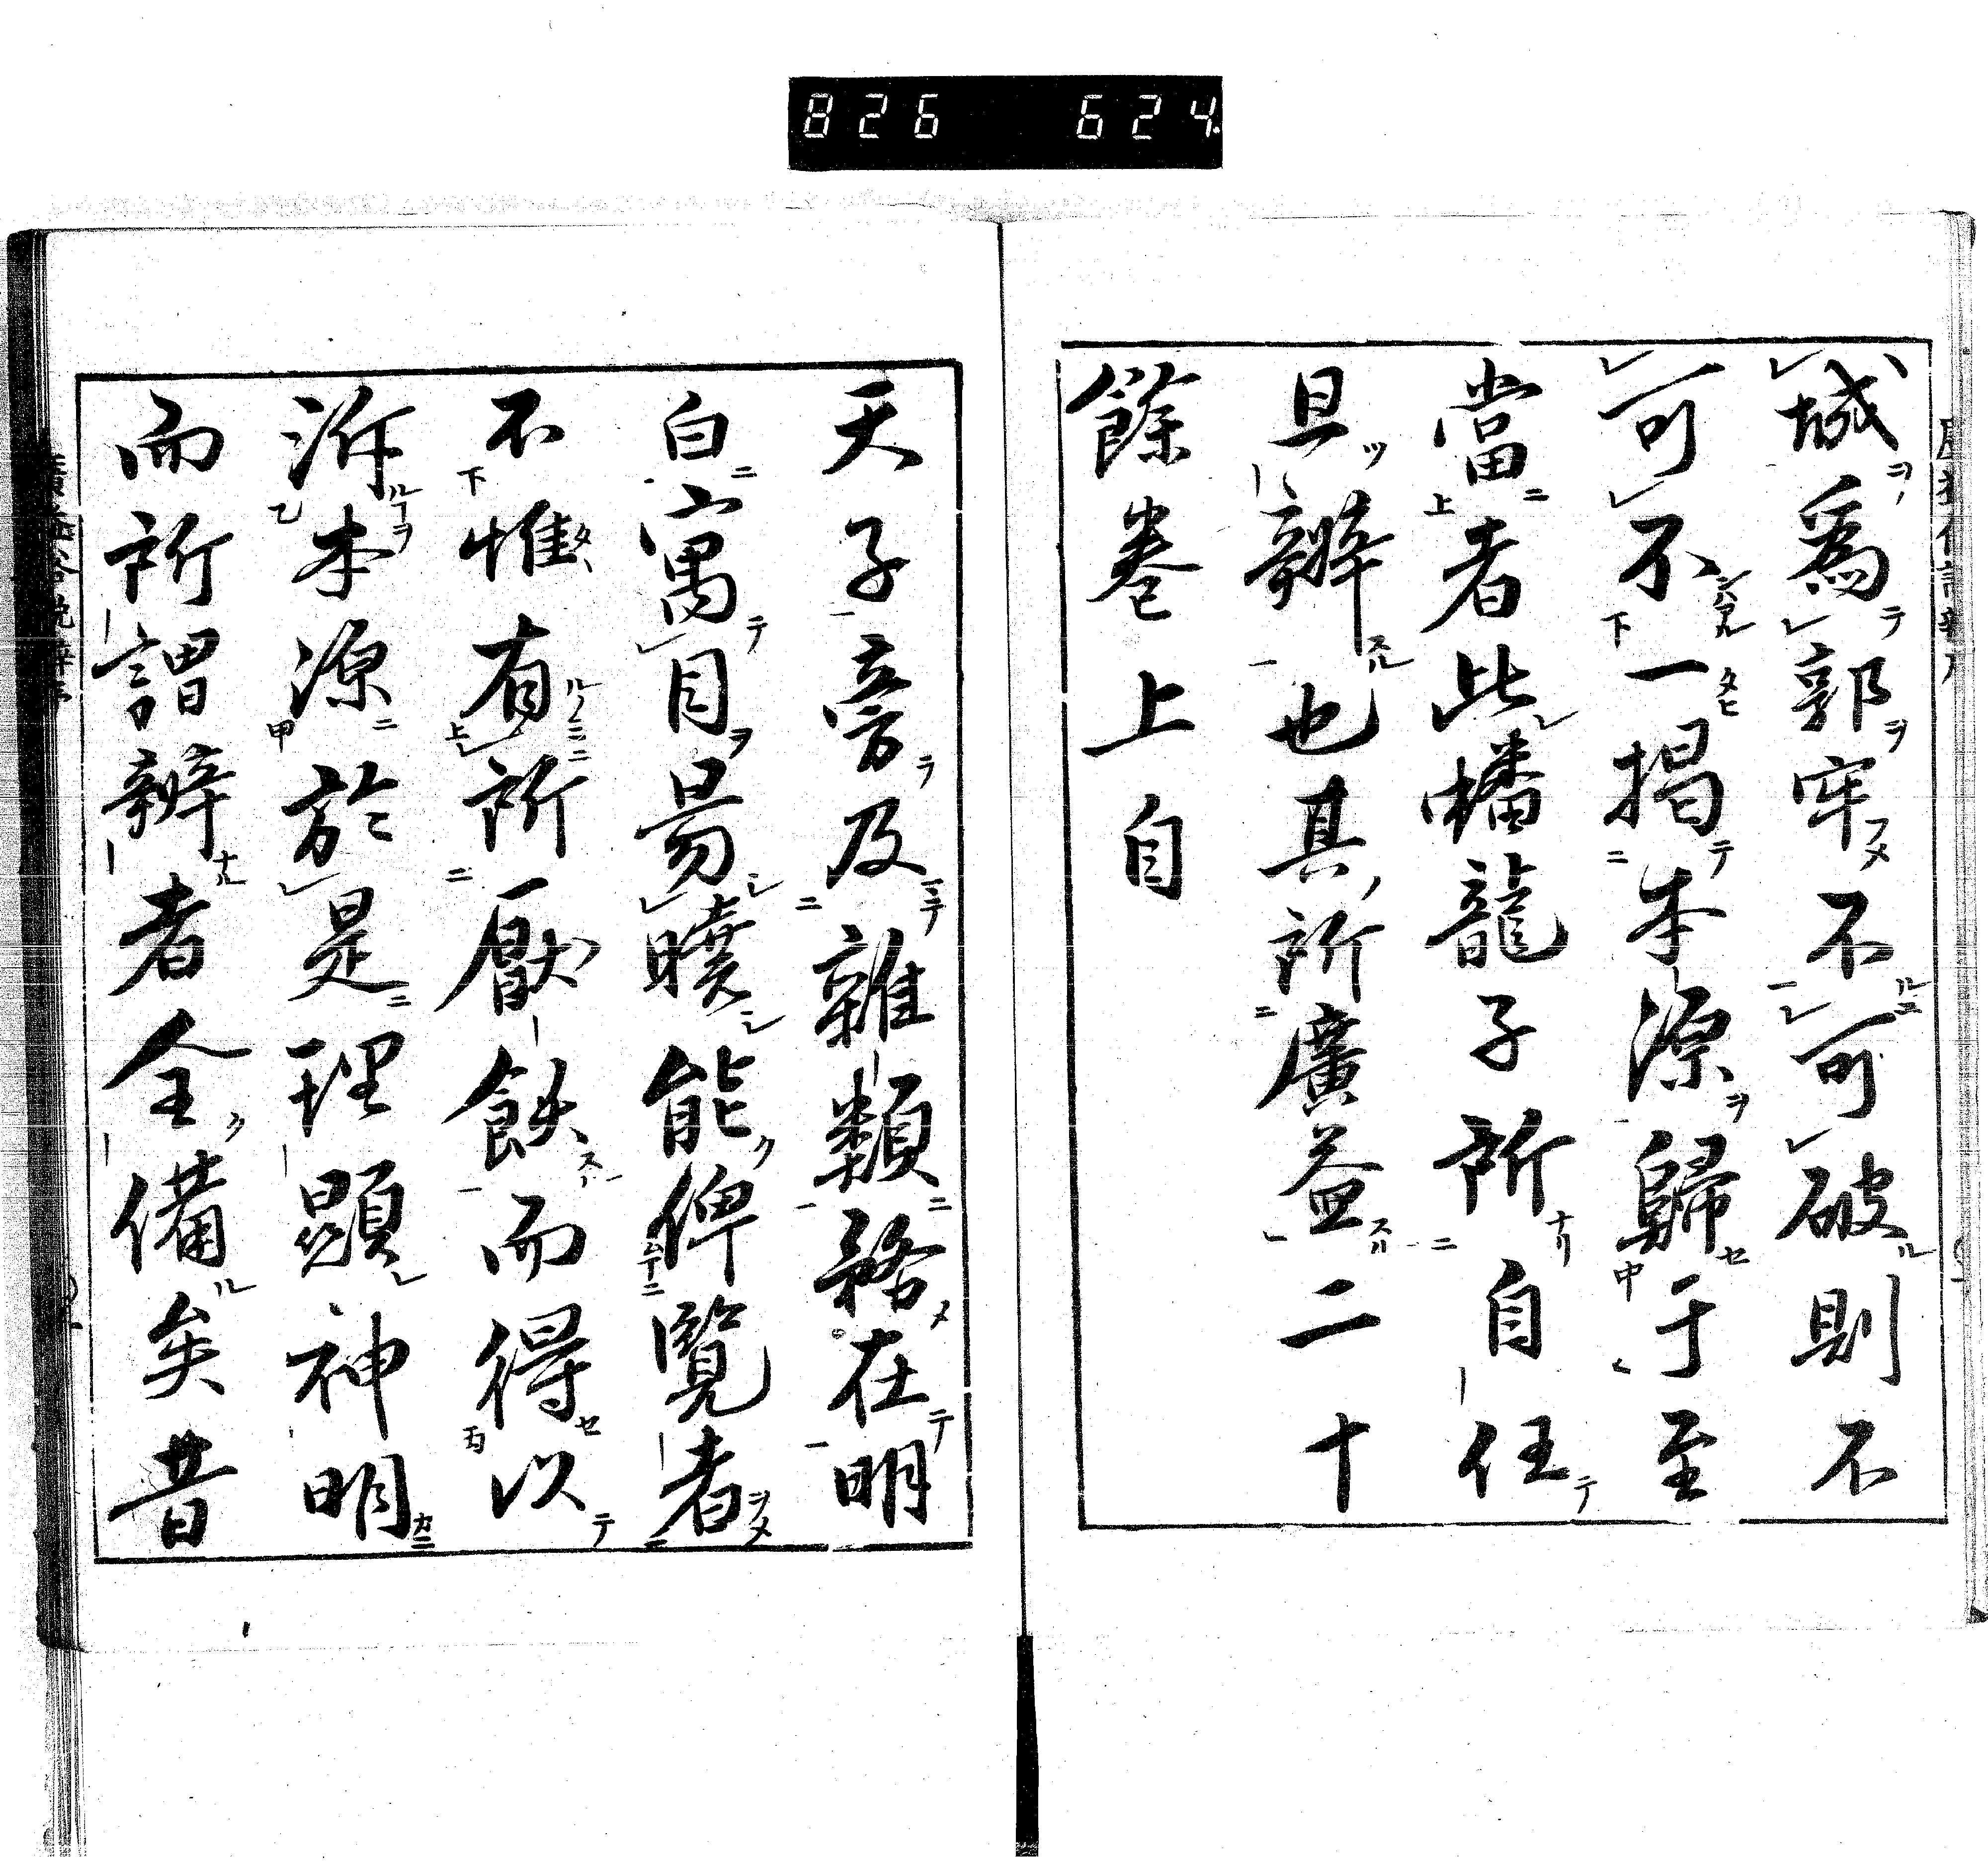 826 624
城爲郭牢不可破則不
可不一揭本源歸于至
當者此幡龍子所自任
且辯也其所廣益二十
餘卷上自
天子旁及雜類務在明
白寓目易曉能俾覽者
不惟有所厭飫而得以
泝本源於是理顯神明
而所謂辯者全備矣昔